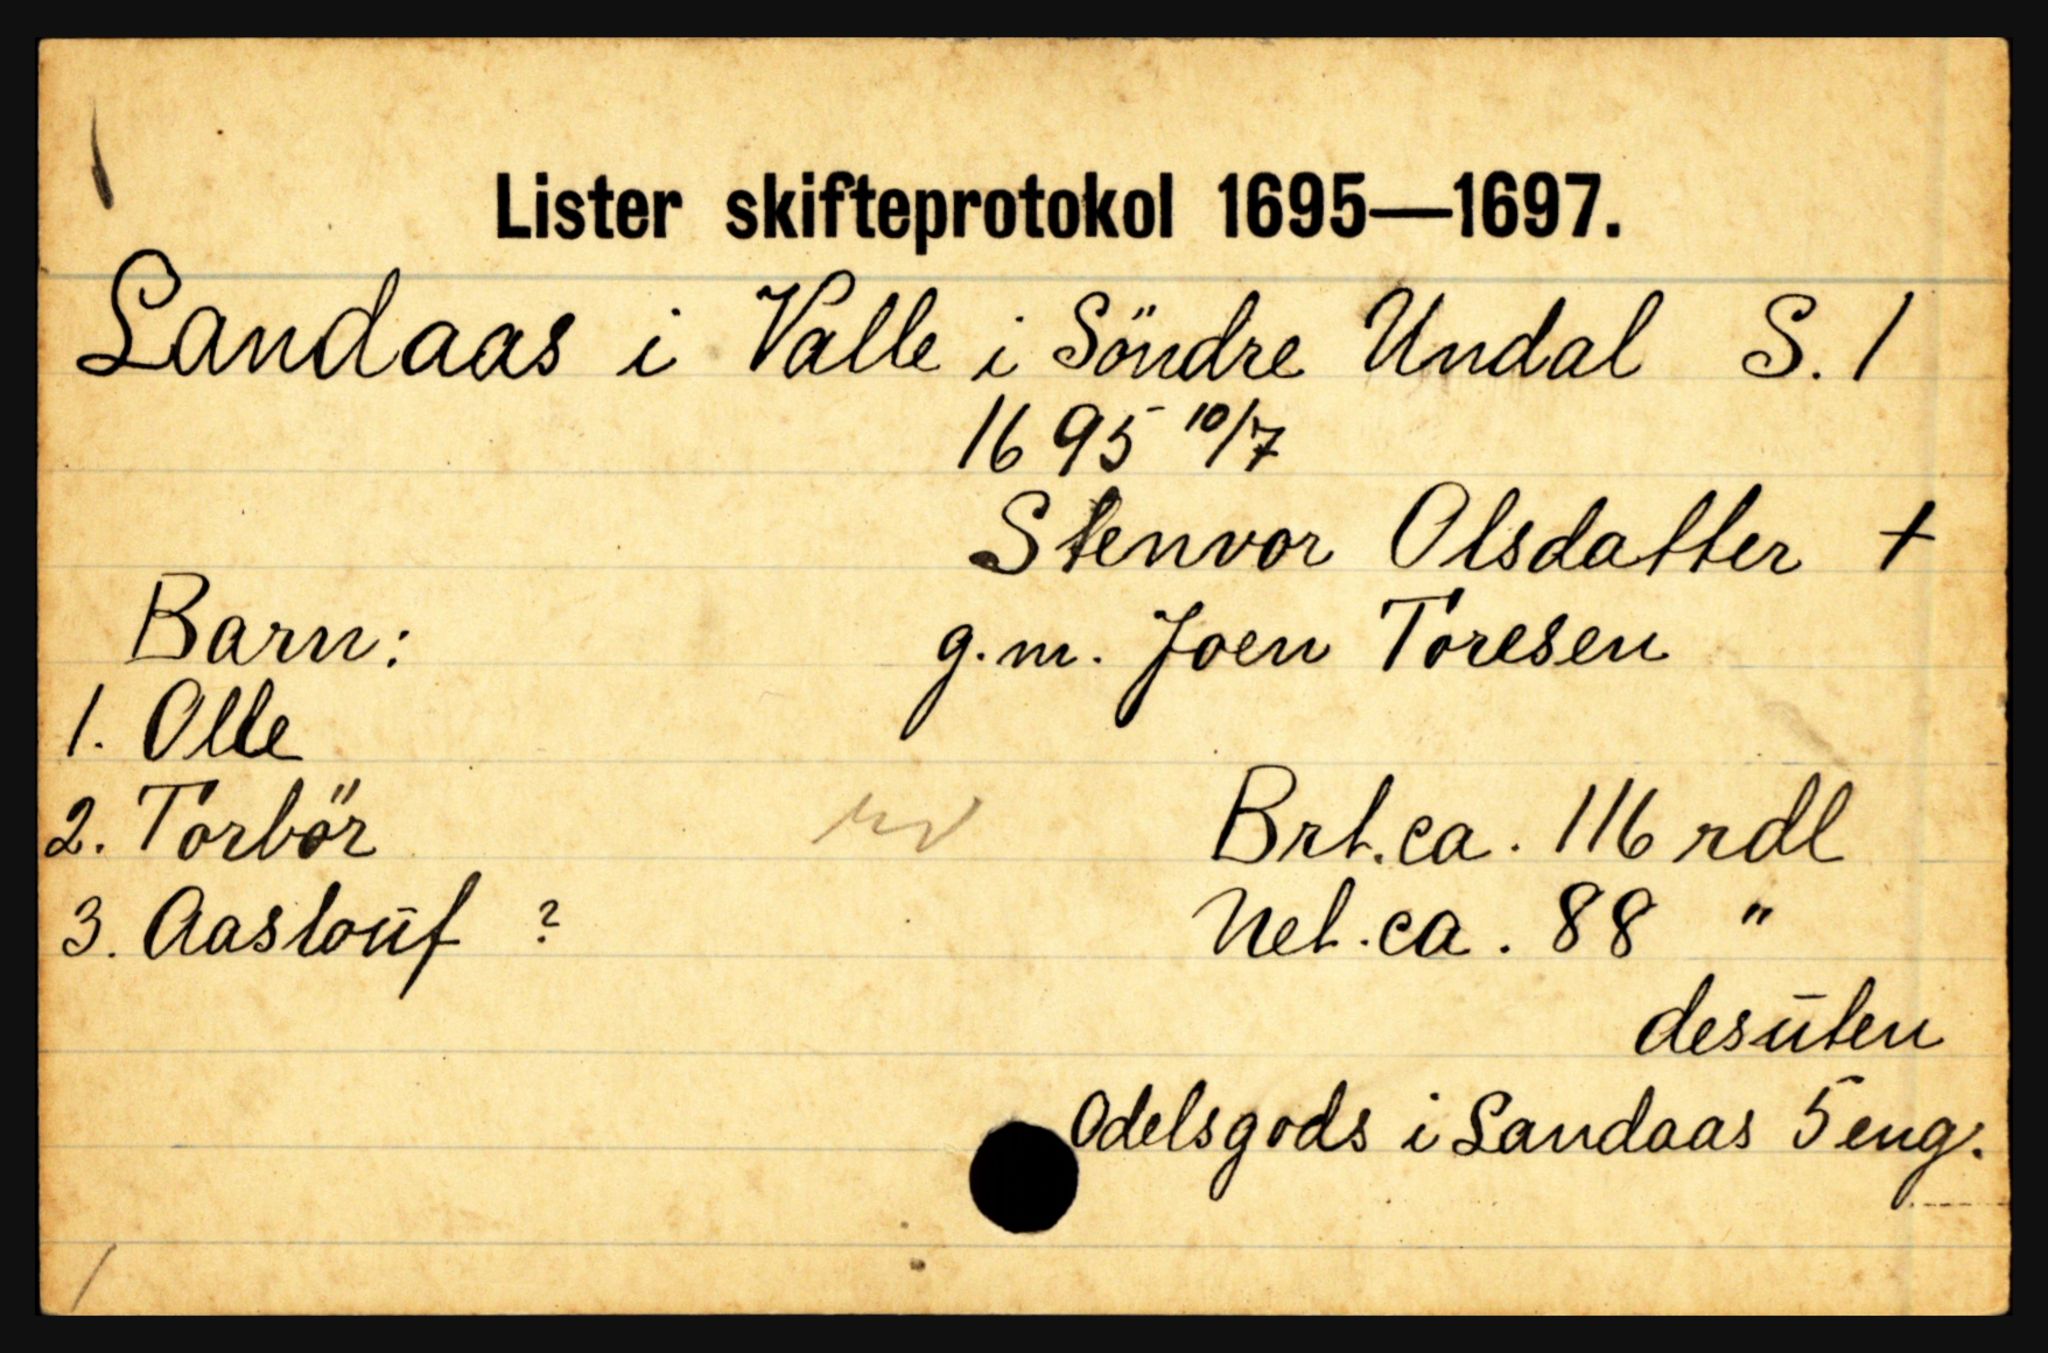 Lister skifteprotokol 1695—1697.
Landaas i Valle i Söndre Undal S. 1
1695 10/7
Stenvor Olsdatter +
Barn:
g.m. Joen Toresen
1. Olle
2. Torbör
Brt. ca. 116 rdl
3. Aaslouf ?
Net. ca. 88 "
desūten
Odelsgods i Landaas 5 eng.